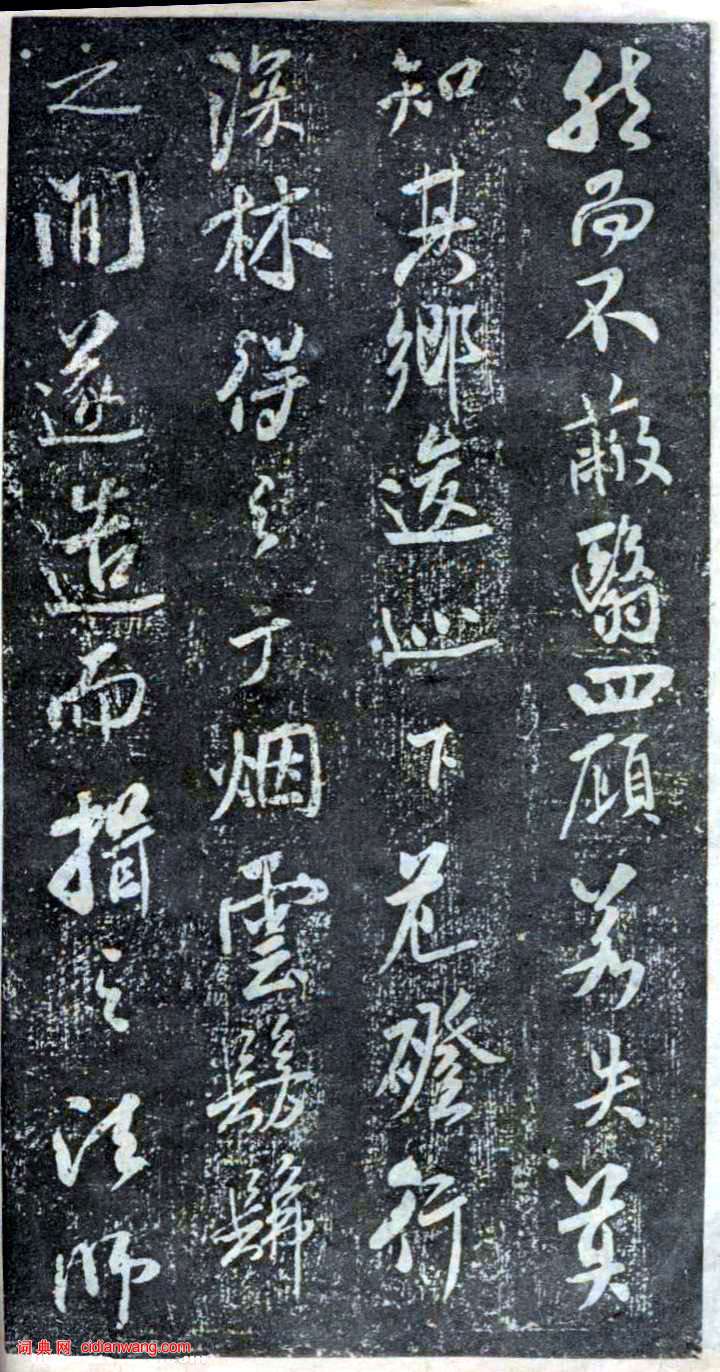 然而不蔽翳四顧若失莫
知其鄉逡巡下危磴行
深林得之于烟雲髣髴
之間遂造而揖之法師
词典网 cidianwang.com